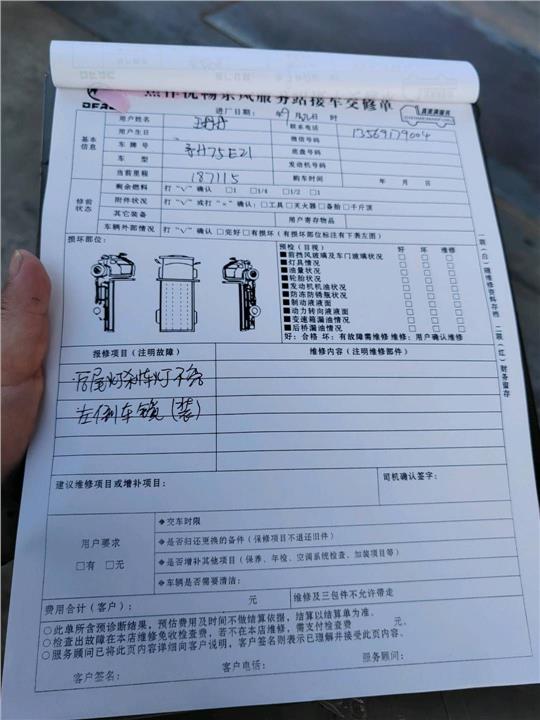 焦作优畅东风服务站接车交修单
DFAC
进厂日期: 年 9 月 日 时
基本信息
用户姓名
联系电话 13569179004
用户生日 微信号码
车牌号 75E21 底盘号码
车型 发动机号码
当前里程 187115 购车时间 年 月 日
修前状态
剩余燃料 打“√”确认 □1 □1/4 □1/2 □1
附件状况 打“√”或打“×”确认:□工具□灭火器□备胎□千斤顶
其它装备 用户寄存物品
车辆外部情况 打“√”确认 □完好□有损坏(有损坏部位标注有下表左图)
损坏部位:
预检(目视) 好 坏 维修
■前挡风玻璃及车门玻璃状况 □ □ □
■灯具情况 □ □ □
■油量状况 □ □ □
■轮胎状况 □ □ □
■发动机机油状况 □ □ □
■防冻防锈瓶状况 □ □ □
■制动液液面 □ □ □
■动力转向液液面 □ □ □
■变速箱漏油情况 □ □ □
■后桥漏油情况 □ □ □
好:合格 坏:有故障需维修 维修:用户确认维修
报修项目(注明故障) 维修内容(注明维修部件)
后尾灯刹车灯不亮
左侧车镜(装)
建议维修项目或增补项目: 司机确认签字:
用户要求
□有 □无
◆交车时限
◆是否归还更换的备件(保修项目不退还旧件)
◆是否增补其他项目(保养、年检、空调系统检查、加装项目等)
◆车辆是否需要清洁:
费用合计(客户): 元 维修及三包件不允许带走
○此单所含预诊断结果,预估费用及时间不做结算依据,结算以结算单为准。
○检查出故障在本店维修免收检查费,若不在本店维修,需支付检查费 元。
○服务顾问已将此页内容详细向客户说明,客户签名则表示已理解并接受此页内容。
客户签名: 客户电话: 服务顾问:
一联(白)随维修资料存档 二联(红)财务留存